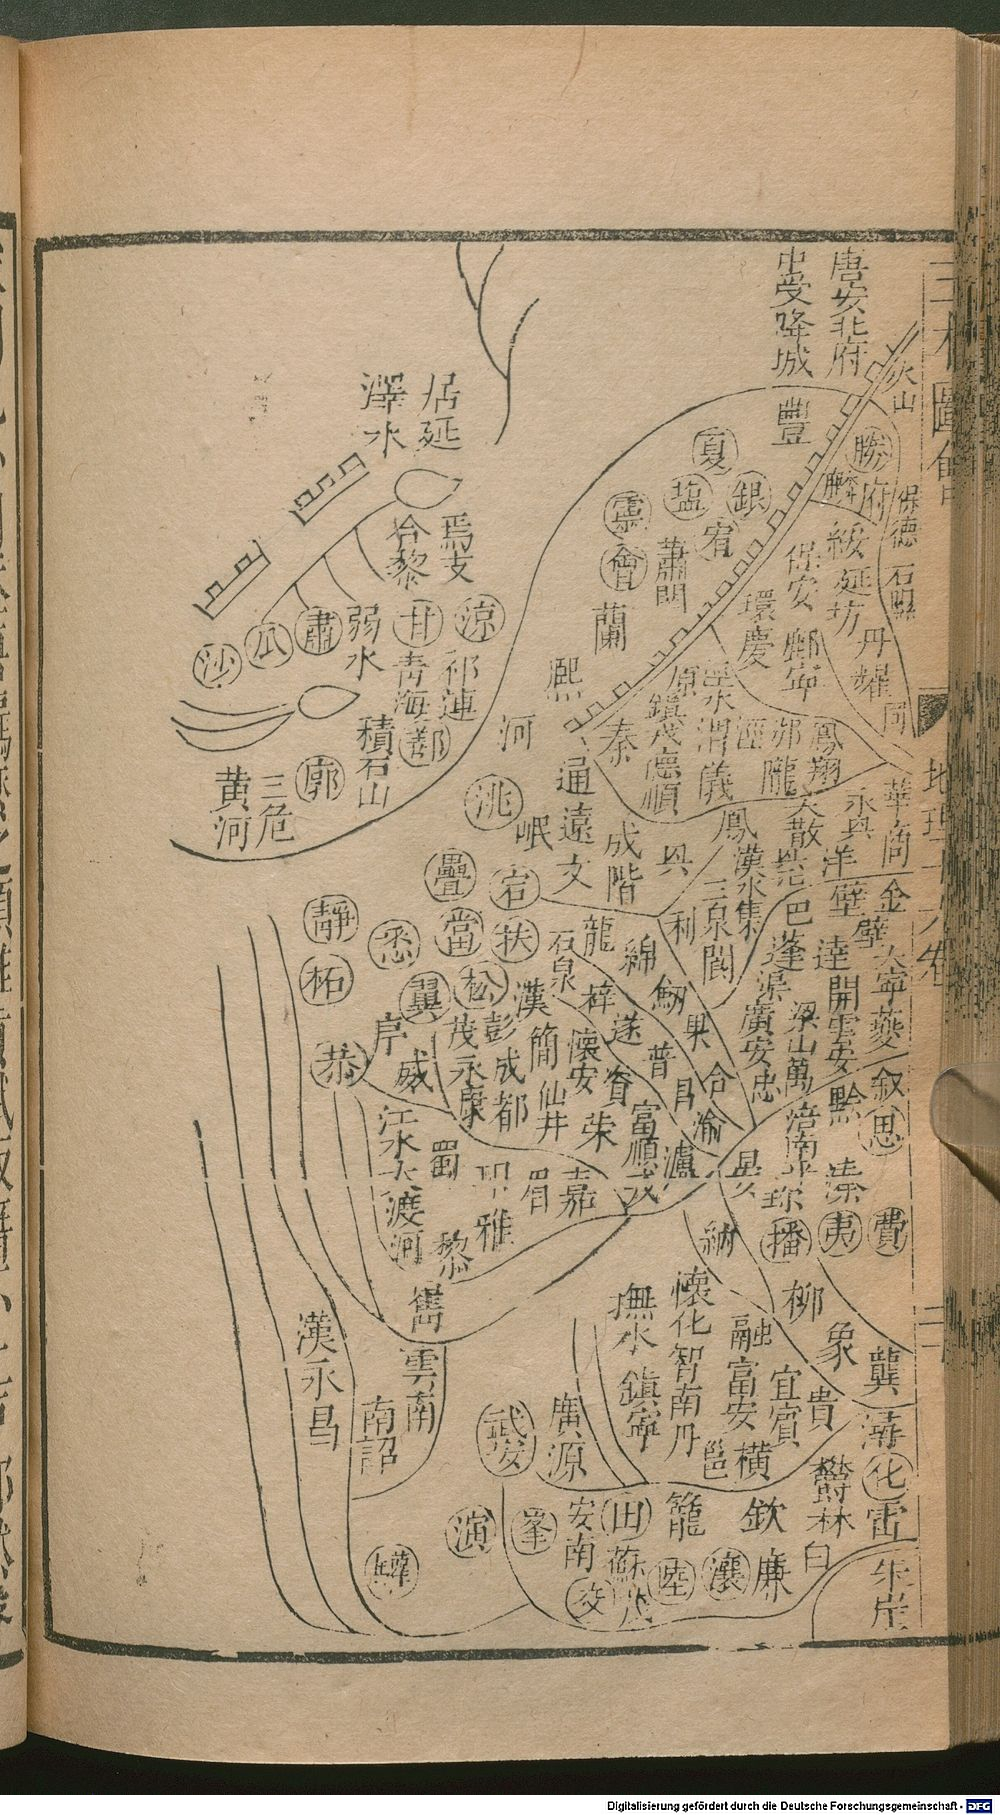 唐安北府
中受降城
火山
豐
勝
府
麟
保德
夏
銀
塩
宥
靈
會
蕭關
綏
延
坊
保安
丹
環
慶
鄜
寧
蘭
熙
河
原
渭
鎮戎
德順
儀
涇
邠
隴
鳳翔
秦
同
華
商
永興
大散
居延
澤水
焉支
合黎
涼
甘
祁連
青海
鄯
弱水
肅
瓜
沙
積石山
廓
三危
黃河
洮
通遠
岷
成
階
文
鳳
興
漢水
三泉
利
閬
集
巴
洋
壁
金
蓬
達
渠
開
大寧
夔
廣安
梁山
雲安
萬
忠
涪
南平
黔
思
疊
宕
當
扶
靜
柘
悉
翼
松
恭
威
茂
永康
彭
漢
石泉
龍
綿
劍
梓
遂
果
合
簡
懷安
普
資
昌
渝
成都
仙井
榮
富順
瀘
江水
大渡河
蜀
雅
眉
嘉
黎
嶲
珍
溱
播
夷
費
納
柳
象
龔
潯
化
雷
朱崖
懷化
智
南丹
撫水
鎮寧
融
富安
宜
賓
貴
邕
橫
欝林
白
雲南
南詔
漢永昌
武安
廣源
演
峯
安南
交
驩
田
蘇茂
籠
欽
廉
瀼
陸
三才圖會
地理十六卷
Digitalisierung gefördert durch die Deutsche Forschungsgemeinschaft - DFG